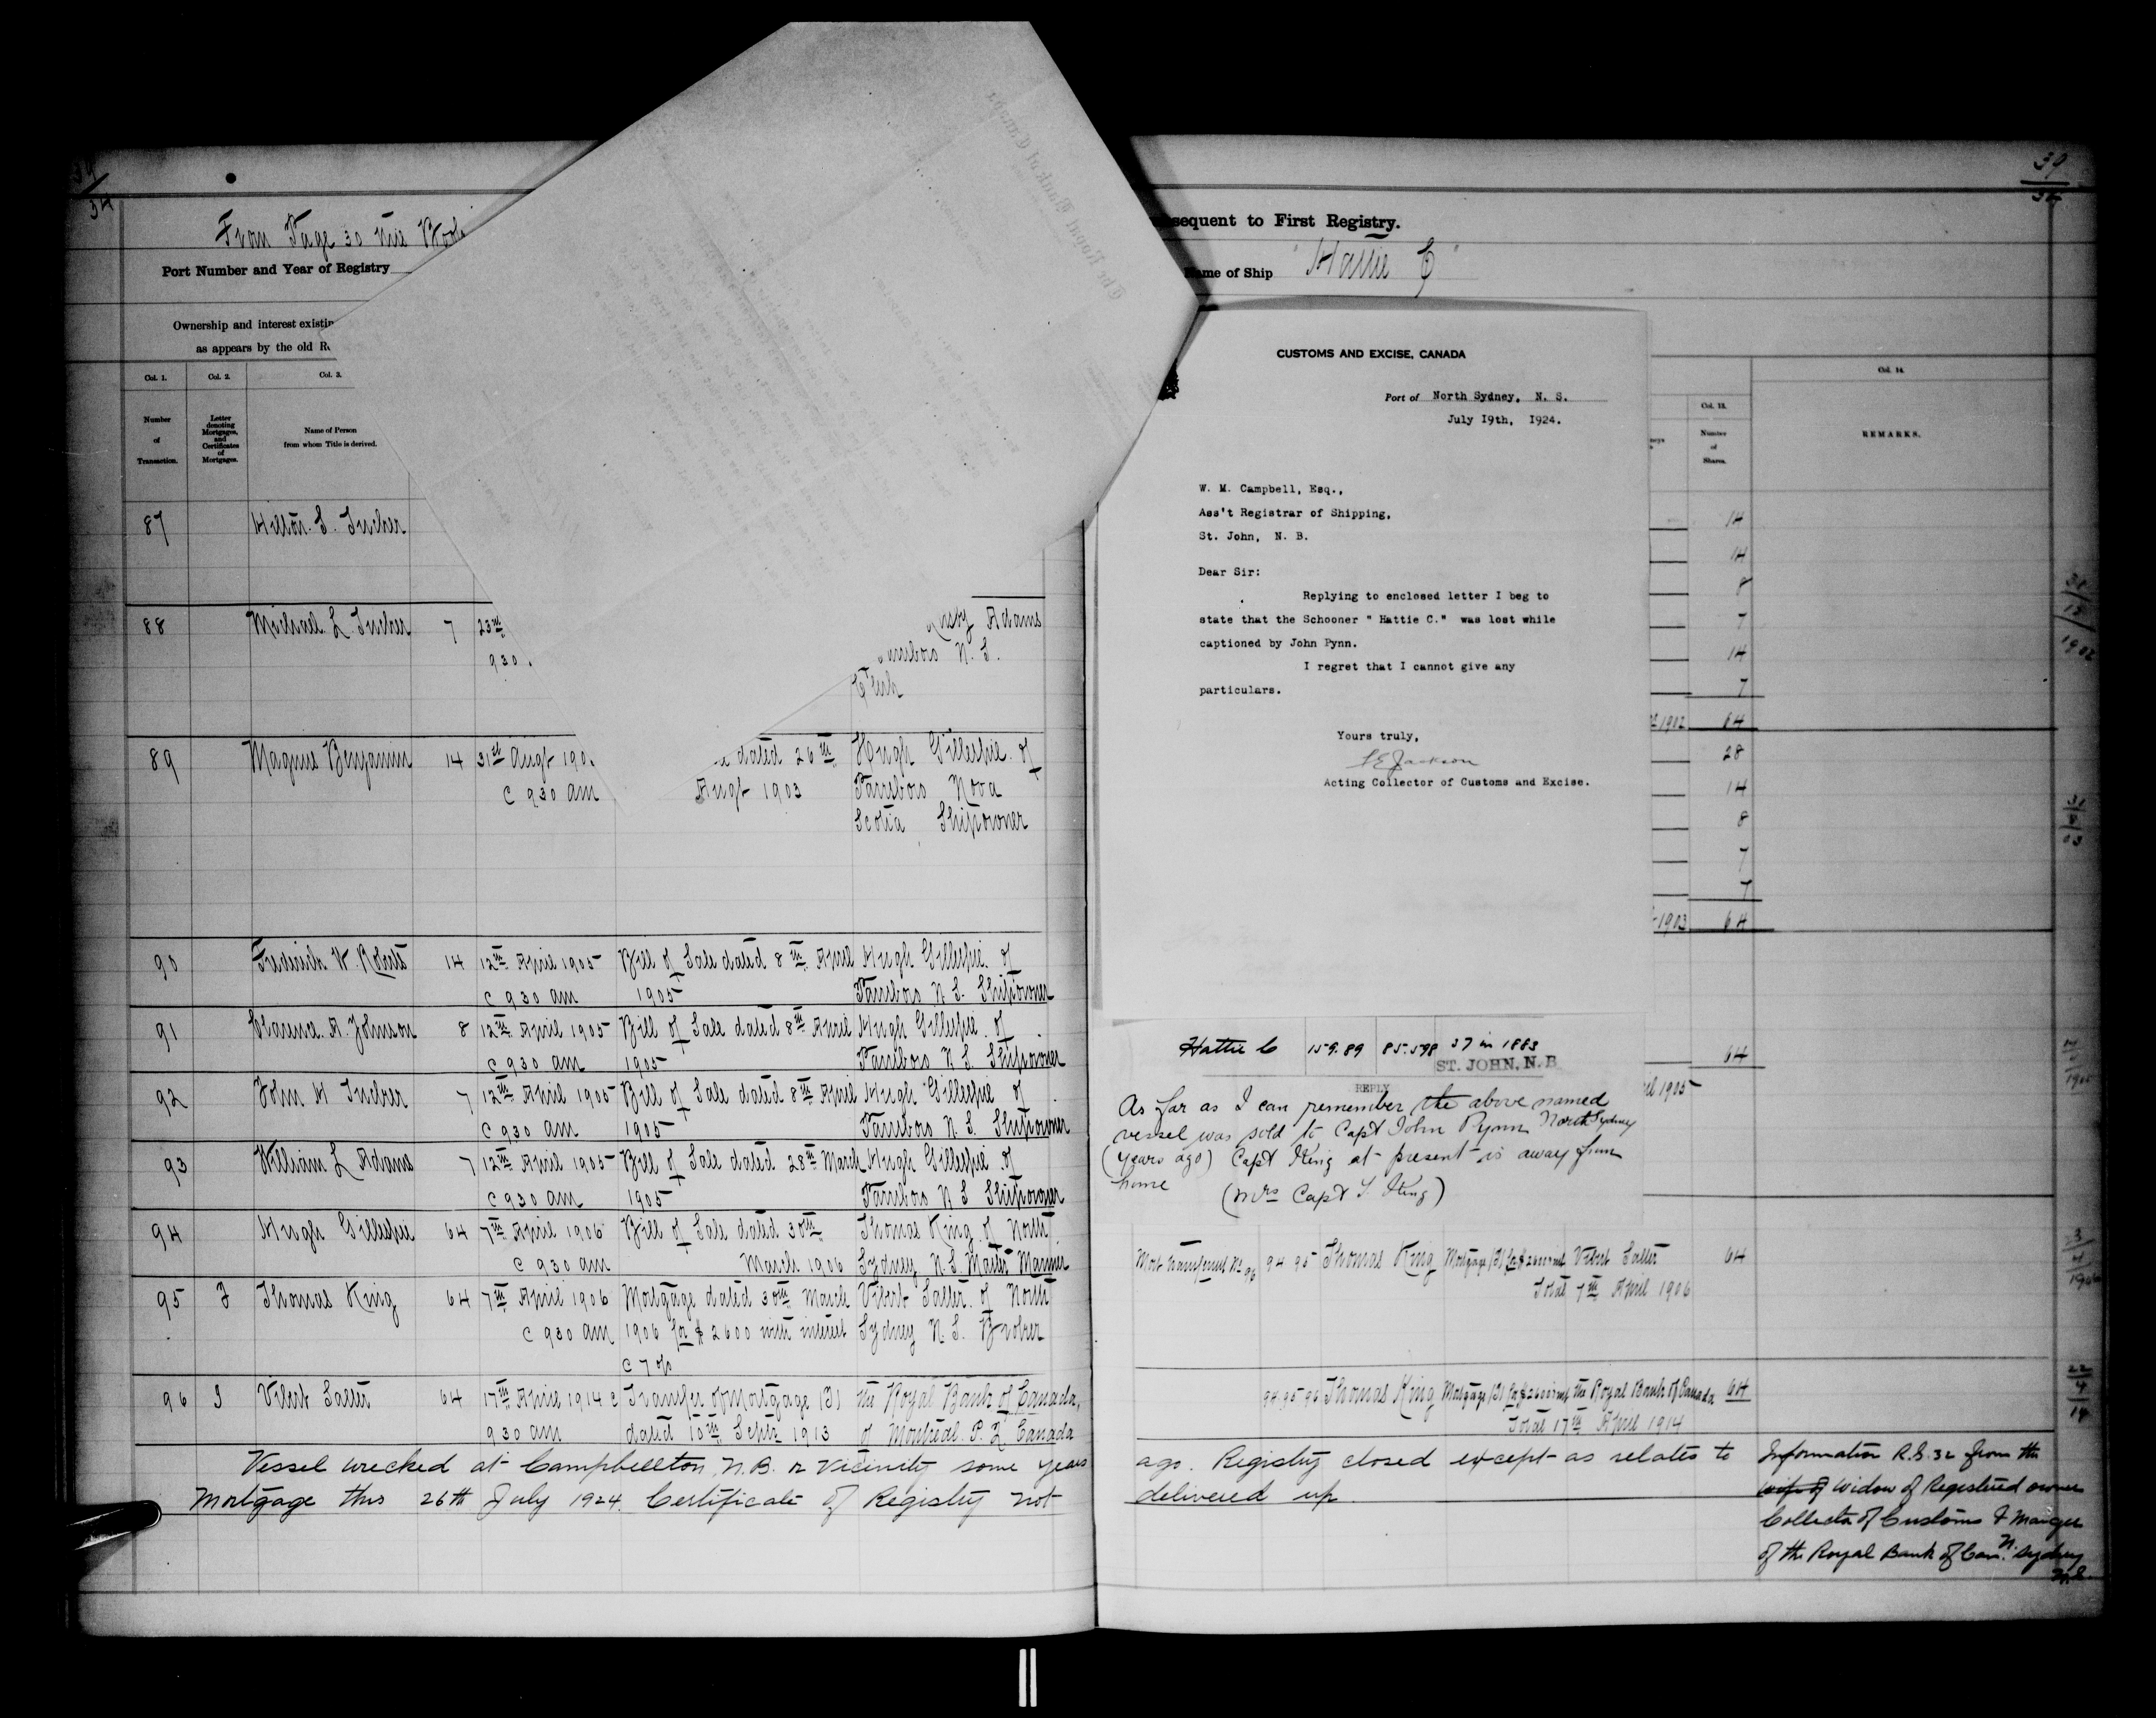 39
34
From Page 30 this Book
Port Number and Year of Registry
Ownership and interest existin
as appears by the old R
Col. 1.
Col. 2.
Col. 3.
Number
of
Transaction.
Letter
denoting
Mortgages,
and
Certificates
of
Mortgages.
Name of Person
from whom Title is derived.
87 Hilton S. Tucker
88 Michael L Tucker 7 23rd
930
Adams
N. S.
Clerk
89 Magnus Benjamin 14 31st Augt 190 dated 26th Hugh Gillespie of
c 930 am Augt 1903 Parrsboro Nova
Scotia Shipowner
90 Frederick W. Roberts 14 12th April 1905 Bill of Sale dated 8th April Hugh Gillespie of
c 930 am 1905 Parrsboro N S. Shipowner
91 Clarence. A. Johnson 8 12th April 1905 Bill of Sale dated 8th April Hugh Gillespie of
c 930 am 1905 Parrsboro N S. Shipowner
92 John H Tucker 7 12th April 1905 Bill of Sale dated 8th April Hugh Gillespie of
c 930 am 1905 Parrsboro N S. Shipowner
93 William L Adams 7 12th April 1905 Bill of Sale dated 28th March Hugh Gillespie of
c 930 am 1905 Parrsboro N S Shipowner
94 Hugh Gillespie 64 7th April 1906 Bill of Sale dated 30th Thomas King of North
c 930 am March 1906 Sydney N. S. Master Mariner
95 Thomas King 64 7th April 1906 Mortgage dated 30th March Vibert Salter of North
c 930 am 1906 for $ 2600 with interest Sydney N. S. Broker
c 7 %
96 Vibert Salter 64 17th April 1914 c Transfer of Mortgage (B) the Royal Bank of Canada,
930 am dated 10th Septr 1913 of Montreal. P. Q Canada
Vessel wrecked at Campbellton, N.B. or vicinity some years
Mortgage this 26th July 1924. Certificate of Registry not
39
34
sequent to First Registry.
Name of Ship "Hattie C"
CUSTOMS AND EXCISE, CANADA
Port of North Sydney, N. S.
July 19th, 1924.
W. M. Campbell, Esq.,
Ass't Registrar of Shipping,
St. John, N. B.
Dear Sir:
Replying to enclosed letter I beg to
state that the Schooner " Hattie C." was lost while
captioned by John Pynn.
I regret that I cannot give any
particulars.
Yours truly,
Jackson
Acting Collector of Customs and Excise.
Col. 13.
Number
of
Shares.
Col. 14.
REMARKS.
14
14
8
7
14
7
1902 64
28
14
8
7
7
1903 64
64
1905
Hattie C 159.89 85.598 37 in 1883
ST. JOHN, N. B
REPLY
As far as I can remember the above named
vessel was sold to Capt John Pynn North Sydney
(years ago) Capt King at present is away from
home (Mrs Capt T. King)
Mort transferred No 96 94 95 Thomas King Mortgage (B) for $2600 Vibert Salter 64
Total 7th April 1906
94.95 96 Thomas King Mortgage (B) for $2600 the Royal Bank of Canada 64
Total 17th April 1914
ago. Registry closed except as relates to
delivered up.
Information R.S. 32 from the
wife of Widow of Registered owner
Collector of Customs & Manager
of the Royal Bank of Can. N. Sydney
N.S.
1902
23
4
1906
22
4
14
The Royal Bank of Canada